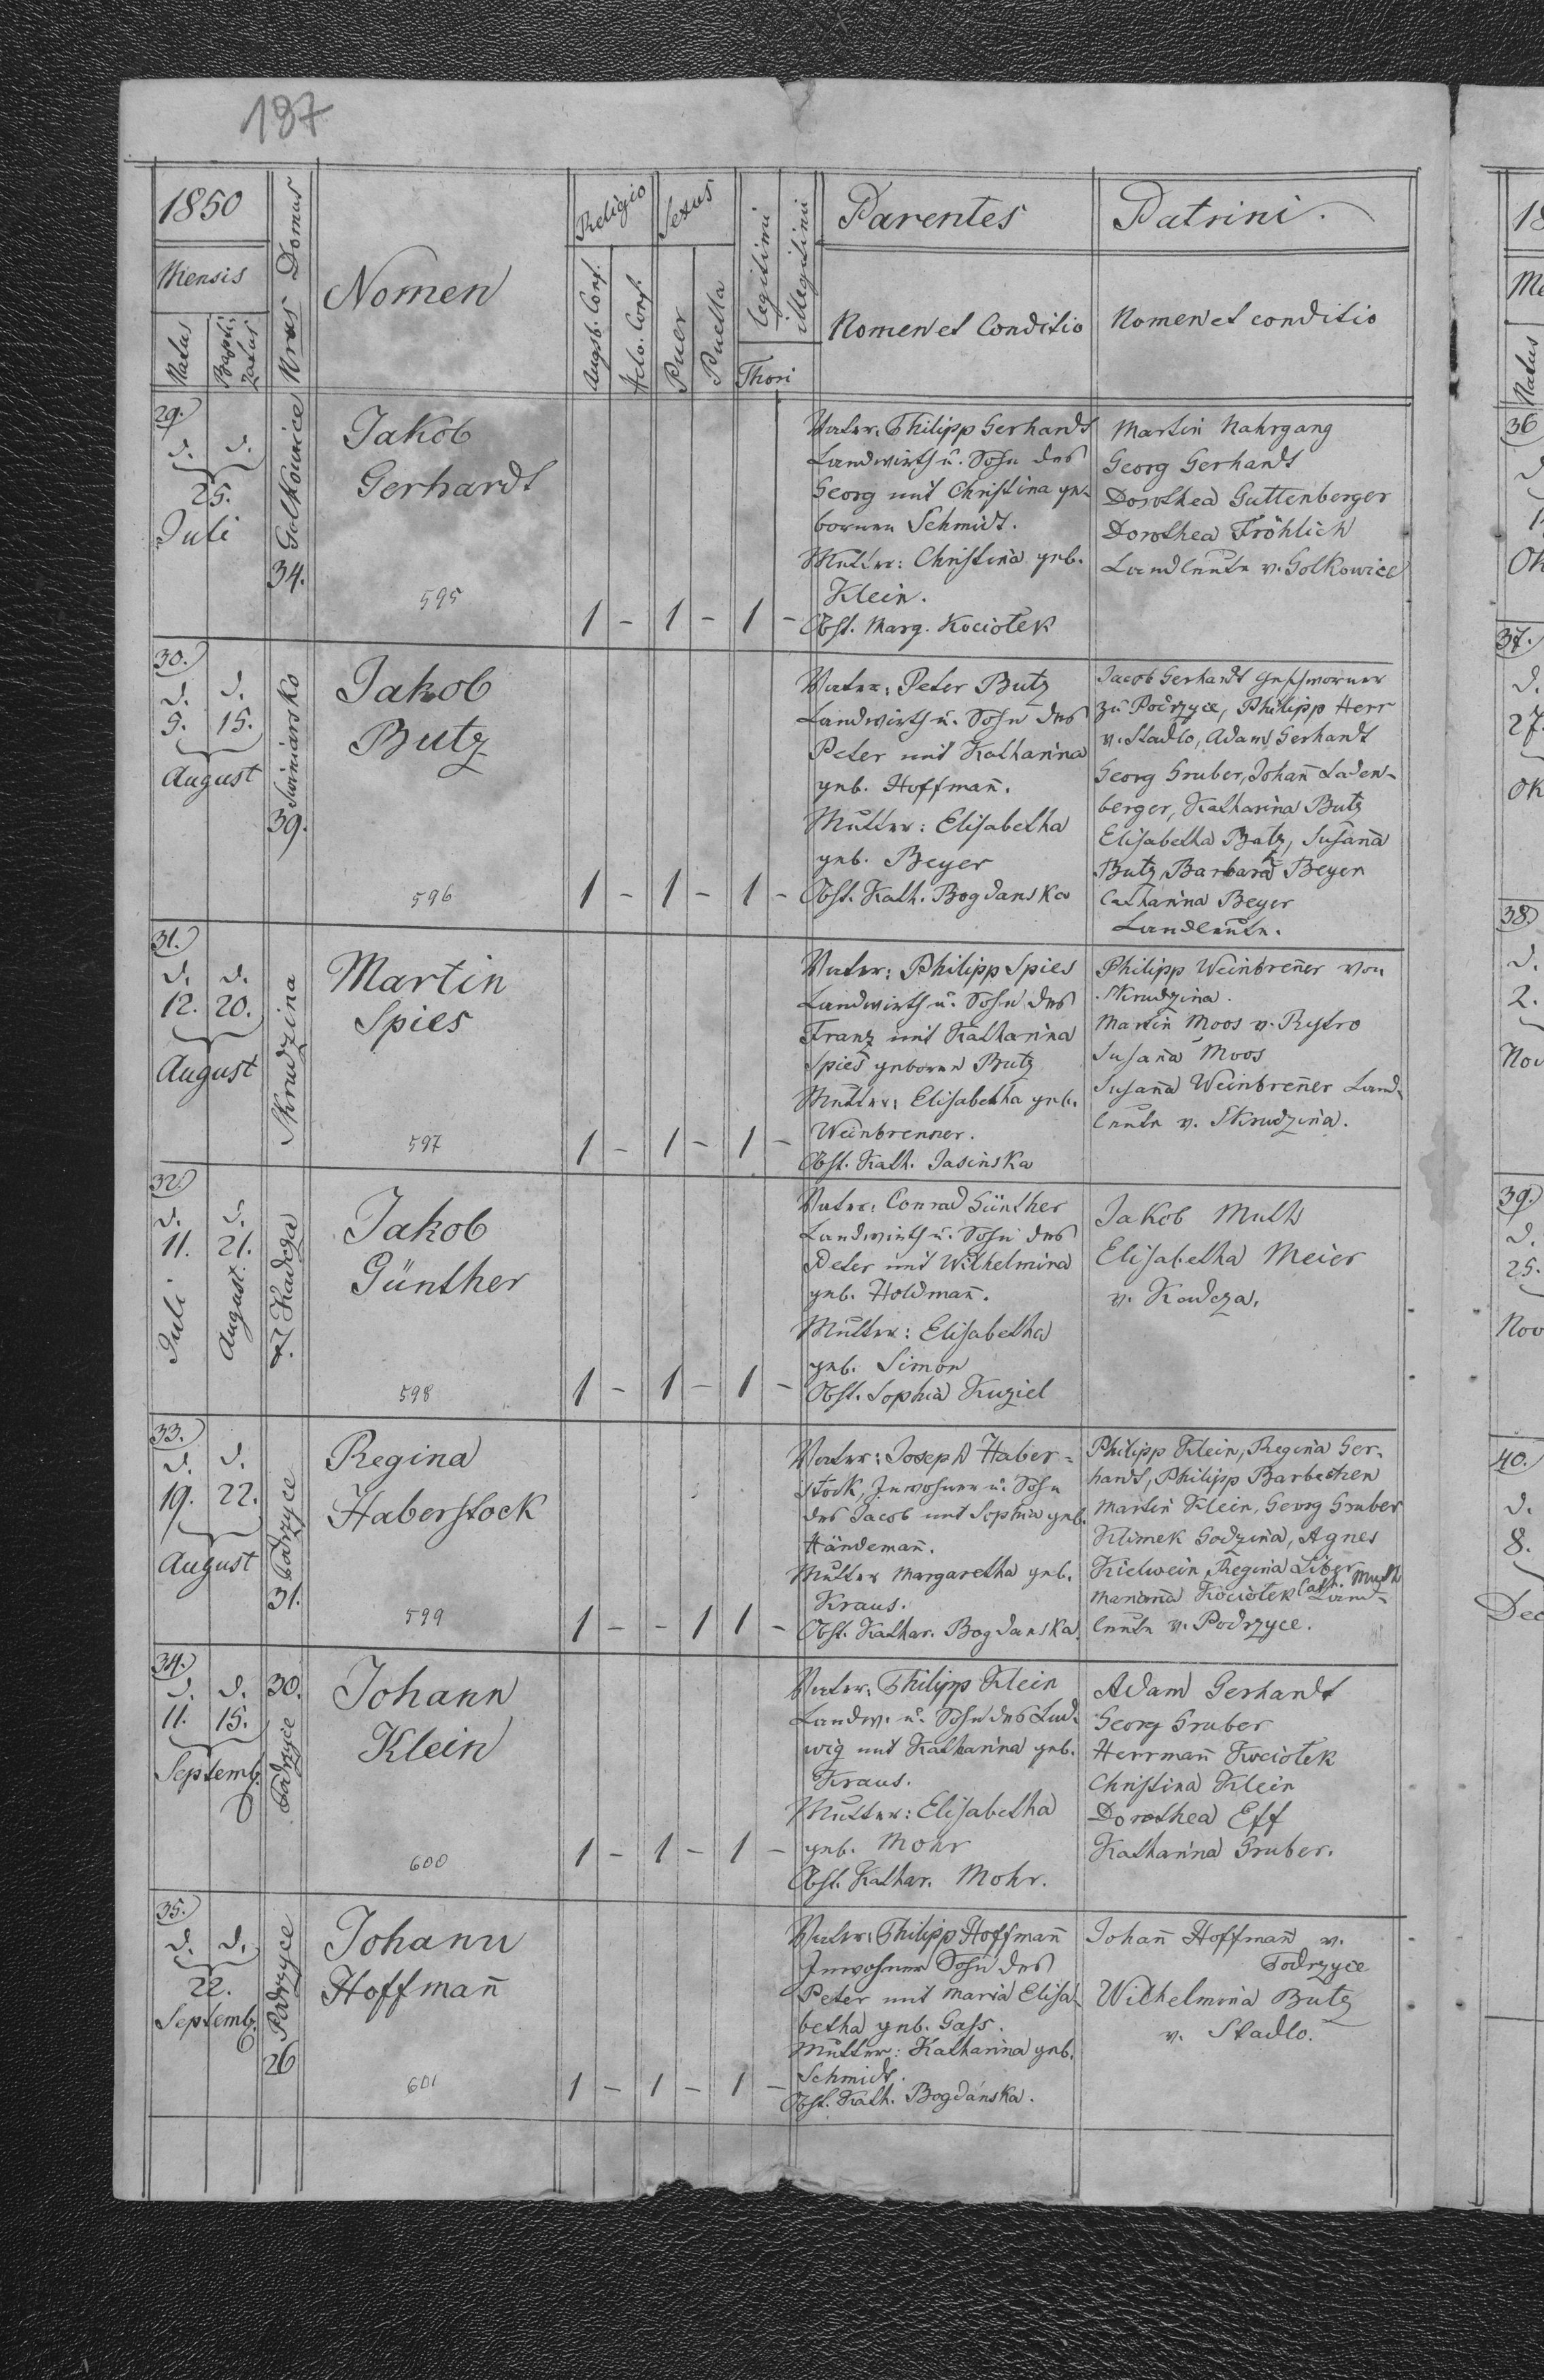 187
1850
Mensis
Natus
Baptizatus
Nrus Domus
Nomen
Religio
Augsb. Conf.
Helv. Conf.
Sexus
Puer
Puella
legitimi
illegitimi
Thori
Parentes
Nomen et Conditio
Patrini.
Nomen et conditio
29.
d. d.
25.
Juli
34. Golkowice
Jakob
Gerhardt
595
1 - 1 - 1 -
Vater: Philipp Gerhardt
Landwirth u. Sohn des
Georg und Christina ge-
bornen Schmidt.
Mutter: Christina geb.
Klein.
Obst. Marg. Kociołek
Martin Nahrgang
Georg Gerhardt
Dorothea Guttenberger
Dorothea Fröhlich
Landleute v. Golkowice
30.
d. d.
5. 15.
August
39. Swiniarsko
Jakob
Butz
596
1 - 1 - 1 -
Vater: Peter Butz
Landwirth u. Sohn des
Peter und Katharina
geb. Hoffmañ.
Mutter: Elisabetha
geb. Beyer
Obst. Kath. Bogdanska
Jacob Gerhardt Geschworner
zu Podrzyce, Philipp Herr
v. Stadlo, Adam Gerhardt
Georg Gruber, Johañ Laden-
berger, Katharina Butz
Elisabetha Batz, Susaña
Butz, Barbara Beyer
Catharina Beyer
Landleute.
31.
d. d.
12. 20.
August
Skrudzina
Martin
Spies
597
1 - 1 - 1 -
Vater: Philipp Spies
Landwirth u. Sohn des
Franz und Katharina
Spies geborne Butz
Mutter: Elisabetha geb.
Weinbrenner.
Obst. Kath. Jasinska
Philipp Weinbreñer von
Skrudzina.
Martin Moos v. Rytro
Susaña Moos
Susaña Weinbreñer Land-
leute v. Skrudzina.
32.
d. d.
11. 21.
Juli
August
Kadcza
Jakob
Günther
598
1 - 1 - 1 -
Vater: Conrad Günther
Landwirth u. Sohn des
Peter und Wilhelmina
geb. Holdmañ.
Mutter: Elisabetha
geb. Simon
Obst. Sophia Kuziel
Jakob Muth
Elisabetha Meier
v. Kadcza.
33.
d. d.
19. 22.
August
31. Podrzyce
Regina
Haberstock
599
1 - - 1 1 -
Vater: Joseph Haber-
stock, Inwohner u. Sohn
des Jacob und Sophia geb.
Händemañ.
Mutter Margaretha geb.
Kraus.
Obst. Kathar. Bogdanska.
Philipp Klein, Regina Ger-
hardt, Philipp Barbechen
Martin Klein, Georg Gruber
Klimek Godzina, Agnes
Kielwein, Regina Liber
Cath. Muth
Mariaña Kociołek Land-
leute v. Podrzyce.
34.
d. d.
11. 15.
Septemb.
30.
Podrzyce
Johann
Klein
600
1 - 1 - 1 -
Vater: Philipp Klein
Landw. u. Sohn des Lud-
wig und Katharina geb.
Kraus.
Mutter: Elisabetha
geb. Mohr
Obst. Kathar. Mohr.
Adam Gerhardt
Georg Gruber
Herrmañ Kociołek
Christina Klein
Dorothea Eff
Katharina Gruber.
35.
d. d.
22.
Septemb.
26 Podrzyce
Johann
Hoffmañ
601
1 - 1 - 1 -
Vater: Philipp Hoffmañ
Inwohner Sohn des
Peter und Maria Elisa-
betha geb. Gass.
Mutter: Katharina geb.
Schmidt.
Obst. Kath. Bogdánska.
Johañ Hoffmañ v.
Podrzyce
Wilhelmina Butz
v. Stadlo.
18
Me
Natus
36
d.
Ok
37.
d.
27.
Ok
38.
d.
2.
Nov
39.
d.
25.
Nov
40.
d.
8.
Dec